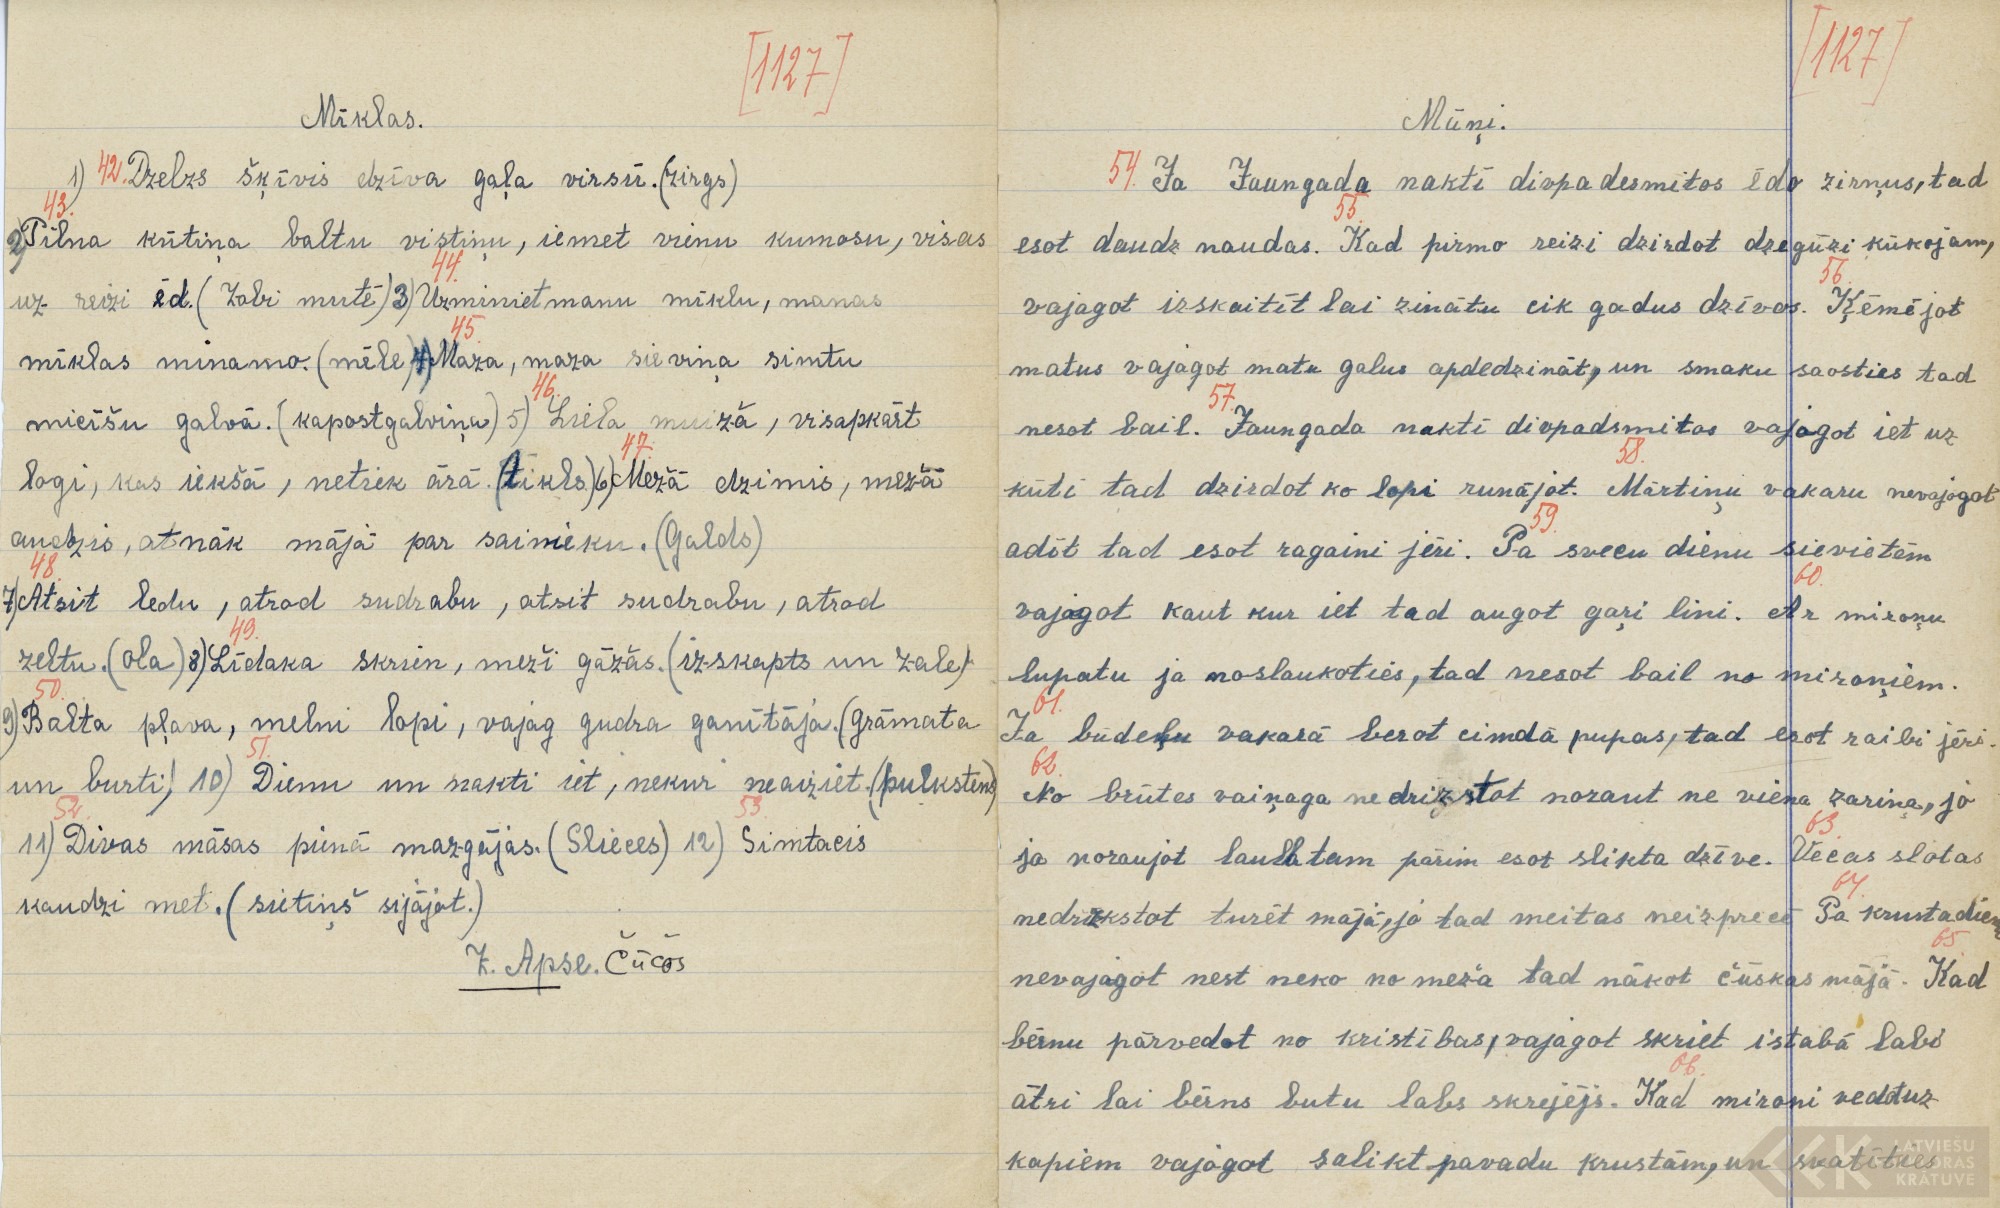 [1127]
Mīklas.
1) 42. Dzelzs šķīvis dzīva gaļa virsū. (zirgs)
43.
2) Pilna kūtiņa baltu vistiņu, iemet vienu kumosu, visas
44.
uz reizi ēd. (Zobi mutē) 3) Uzminiet manu mīklu, manas
45.
mīklas minamo. (mēle) 4) Maza, maza sieviņa simtu
46.
micīšu galvā. (kapostgalviņa) 5) Liela muiža, visapkārt
47.
logi, kas iekšā, netiek ārā. (tīkls) 6) Mežā dzimis, mežā
audzis, atnāk mājā par saimieku. (Galds)
48.
7) Atsit ledu, atrod sudrabu, atsit sudrabu, atrod
49.
zeltu. (ola) 8) Līdaka skrien, meži gāžās. (izskapts un zāle)
50.
9) Balta pļava, melni lopi, vajag gudra ganītāja. (Grāmata
51.
un burti) 10) Dienu un nakti iet, nekur neaiziet. (pulkstens)
52. 53.
11) Divas māsas pienā mazgājās. (Slieces) 12) Simtacis
kaudzi met. (sietiņš sijājot.)
Z. Apse. Čūčos
[1127]
Māņi.
54. Ja Jaungada naktī divpadesmitos ēdo zirņus, tad
55.
esot daudz naudas. Kad pirmo reizi dzirdot dzegūzi kūkojam,
56.
vajagot izskaitīt lai zinātu cik gadus dzīvos. Ķēmējot
matus vajagot matu galus apdedzināt, un smaku saosties tad
57.
nesot bail. Jaungada naktī divpadsmitos vajagot iet uz
58.
kūti tad dzirdot ko lopi runājot. Mārtiņu vakaru nevajagot
59.
adīt tad esot ragaini jēri. Pa sveču dienu sievietēm
60.
vajagot kaut kur iet tad augot gaŗi lini. Ar miroņu
lupatu ja noslaukoties, tad nesot bail no miroņiem.
61.
Ja būdeļu vakarā berot cimdā pupas, tad esot raibi jēri.
62.
No brūtes vaiņaga nedrizstot noraut ne viena zariņa, jo
63.
ja noraujot laulātam pārim esot slikta dzīve. Vecas slotas
64.
nedrīkstot turēt mājā, jo tad meitas neizprecē Pa krustadienu
65.
nevajagot nest neko no meža tad nākot čūskas mājā. Kad
bērnu pārvedot no kristības, vajagot skriet istabā labi
66.
ātri lai bērns butu labs skrejējs. Kad mironi vedot uz
kapiem vajagot salikt pavadu krustām, un svatīties
LATVIEŠU
FOLKLORAS
KRĀTUVE